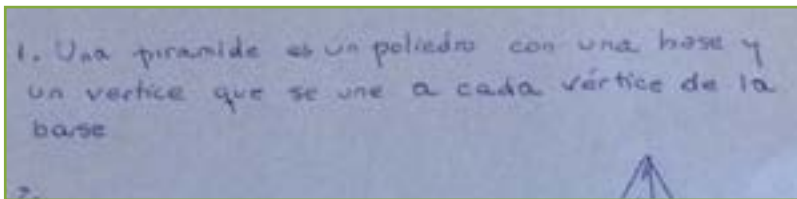 1. Una piramide es un poliedro con una base y
un vertice que se une a cada vértice de la
base
2.